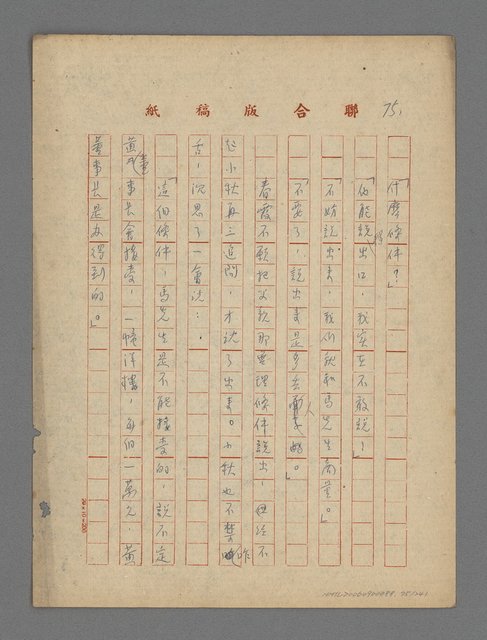 聯合版稿紙
75.
「什麼條件？」
「他能說得出口，我實在不敢說！」
「不妨說出來，我們就和馬先生商量。」
「不要了，說出來是多丟人的事。」
春霞不願把父親那無理條件說出，但經不
起小秋再三追問，才說了出來。小秋也不禁咋
舌，沉思了一會說：
「這個條件，馬先生是不能接受的，說不定
黃董事長會接受，一幢洋樓，每個一萬元，黃
董事長是辦得到的。」
24×10=200